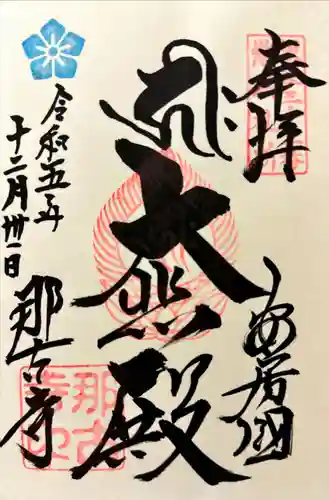 奉拝
安房国
大悲殿
令和五年
十二月卅一日
那古寺
那古
寺印